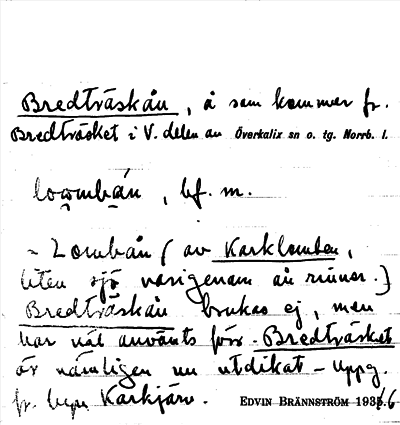 Bredträskån, å som kommer fr.
Bredträsket i V. delen av Överkalix sn o. tg. Norrb. l.
lo͔ǫmbá̱n, bf. m.
~ Lombån (av Karklomben,
liten sjö varigenom ån rinner.)
Bredträskån brukas ej, men
har väl använts förr. Bredträsket
är nämligen nu utdikat – uppg.
fr. byn Karkjärv. EDVIN BRÄNNSTRÖM 193